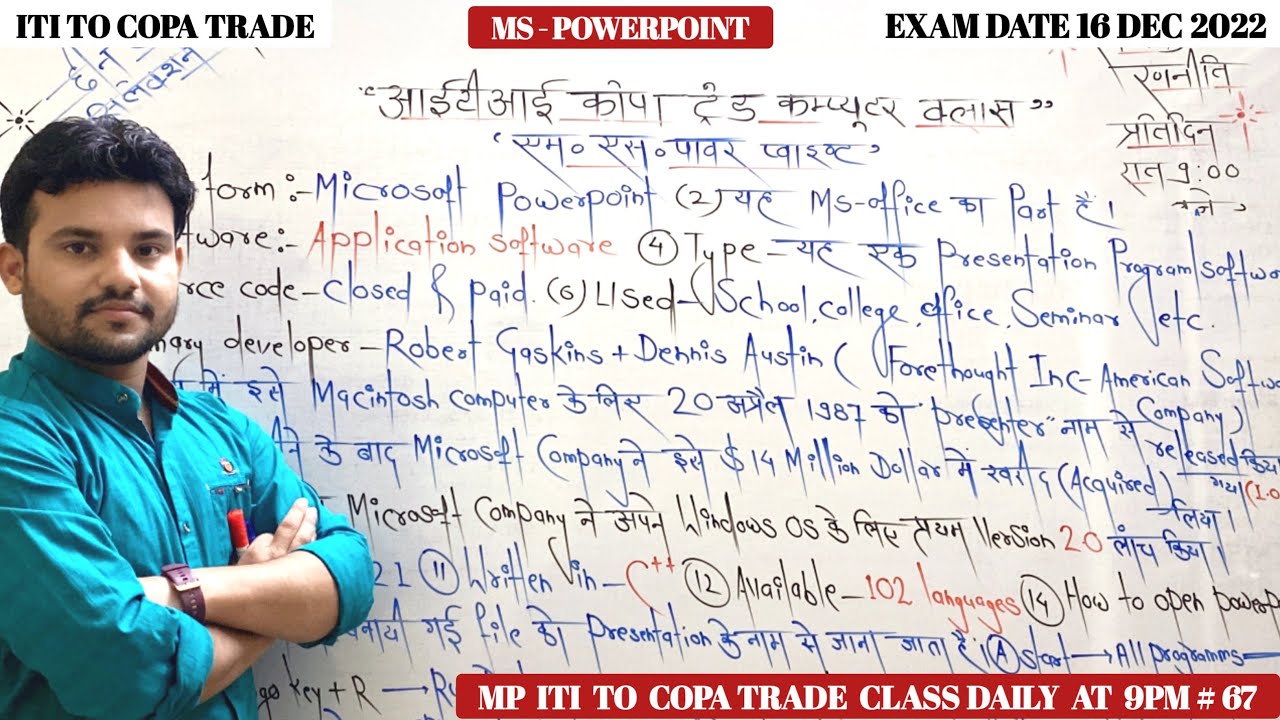 ITI TO COPA TRADE
MS - POWERPOINT
EXAM DATE 16 DEC 2022
सिलेक्शन
रणनीति
प्रतिदिन
रात 9:00
"आईटीआई कोपा ट्रेड कम्प्यूटर क्लास"
'एम० एस० पावर प्वाइण्ट'
form:- Microsoft Powerpoint (2) यह MS-office का Part है।
tware:- Application software (4) Type - यह एक Presentation Program/softwa
rce code - Closed & Paid. (6) Used - School, college, office, Seminar etc.
mary developer - Robert Gaskins + Dennis Austin ( Forethought Inc - American Softwa
Company)
में इसे Macintosh computer के लिए 20 अप्रैल 1987 को "presenter" नाम से released किया
गया (1.0
ने के बाद Microsoft Company ने इसे $ 14 Million Dollar में खरीद (Acquired) लिया।
Microsoft Company ने अपने Windows OS के लिए प्रथम Version 2.0 लांच किया।
21 (11) Written in - C++ (12) Available - 102 languages (14) How to open powerp
बनायी गई file को Presentation के नाम से जाना जाता है। (A) Start → All programms
key + R → Ru
MP ITI TO COPA TRADE CLASS DAILY AT 9PM # 67